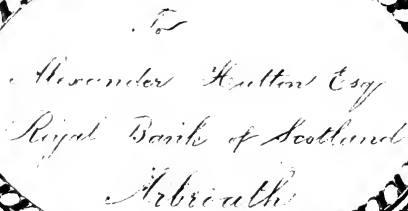 To
Alexander Hutton Esq
Royal Bank of Scotland
Arbroath